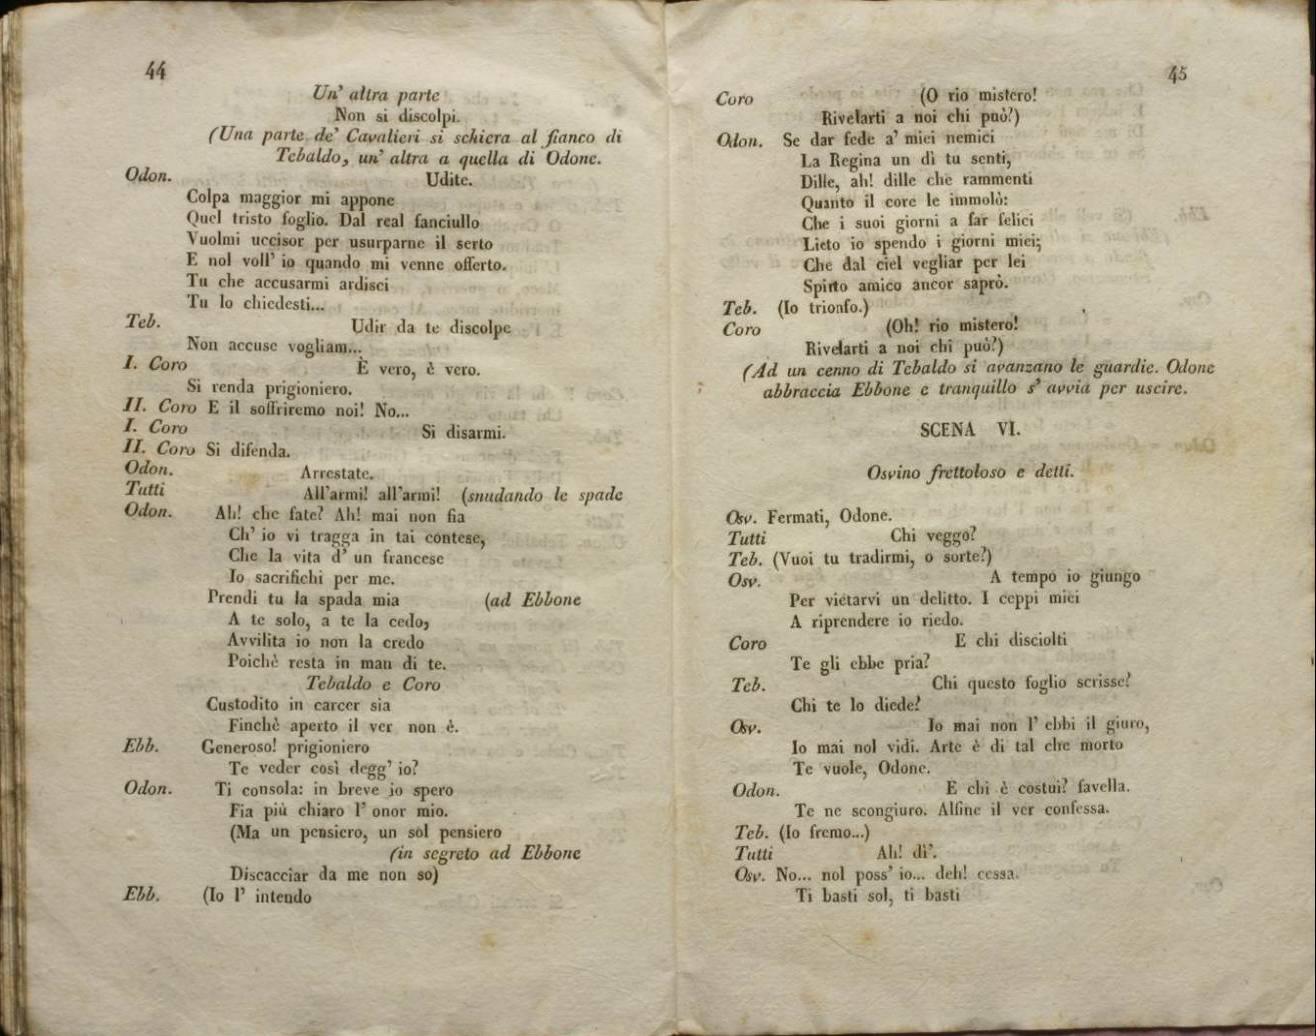 44
Un' altra parte
Non si discolpi.
(Una parte de' Cavalieri si schiera al fianco di
Tebaldo, un' altra a quella di Odone.
Odon. Udite.
Colpa maggior mi appone
Quel tristo foglio. Dal real fanciullo
Vuolmi uccisor per usurparne il serto
E nol voll' io quando mi venne offerto.
Tu che accusarmi ardisci
Tu lo chiedesti...
Teb. Udir da te discolpe
Non accuse vogliam...
I. Coro È vero, è vero.
Si renda prigioniero.
II. Coro E il soffriremo noi! No...
I. Coro Si disarmi.
II. Coro Si difenda.
Odon. Arrestate.
Tutti All'armi! all'armi! (snudando le spade
Odon. Ah! che fate? Ah! mai non fia
Ch' io vi tragga in tai contese,
Che la vita d' un francese
Io sacrifichi per me.
Prendi tu la spada mia (ad Ebbone
A te solo, a te la cedo,
Avvilita io non la credo
Poichè resta in man di te.
Tebaldo e Coro
Custodito in carcer sia
Finchè aperto il ver non è.
Ebb. Generoso! prigioniero
Te veder così degg' io?
Odon. Ti consola: in breve io spero
Fia più chiaro l' onor mio.
(Ma un pensiero, un sol pensiero
(in segreto ad Ebbone
Discacciar da me non so)
Ebb. (Io l' intendo
45
Coro (O rio mistero!
Rivelarti a noi chi può?)
Odon. Se dar fede a' miei nemici
La Regina un dì tu senti,
Dille, ah! dille che rammenti
Quanto il core le immolò:
Che i suoi giorni a far felici
Lieto io spendo i giorni miei;
Che dal ciel vegliar per lei
Spirto amico ancor saprò.
Teb. (Io trionfo.)
Coro (Oh! rio mistero!
Rivelarti a noi chi può?)
(Ad un cenno di Tebaldo si avanzano le guardie. Odone
abbraccia Ebbone e tranquillo s' avvia per uscire.
SCENA VI.
Osvino frettoloso e detti.
Osv. Fermati, Odone.
Tutti Chi veggo?
Teb. (Vuoi tu tradirmi, o sorte?)
Osv. A tempo io giungo
Per vietarvi un delitto. I ceppi miei
A riprendere io riedo.
Coro E chi disciolti
Te gli ebbe pria?
Teb. Chi questo foglio scrisse?
Chi te lo diede?
Osv. Io mai non l' ebbi il giuro,
Io mai nol vidi. Arte è di tal che morto
Te vuole, Odone.
Odon. E chi è costui? favella.
Te ne scongiuro. Alfine il ver confessa.
Teb. (Io fremo...)
Tutti Ah! dì'.
Osv. No... nol poss' io... deh! cessa.
Ti basti sol, ti basti